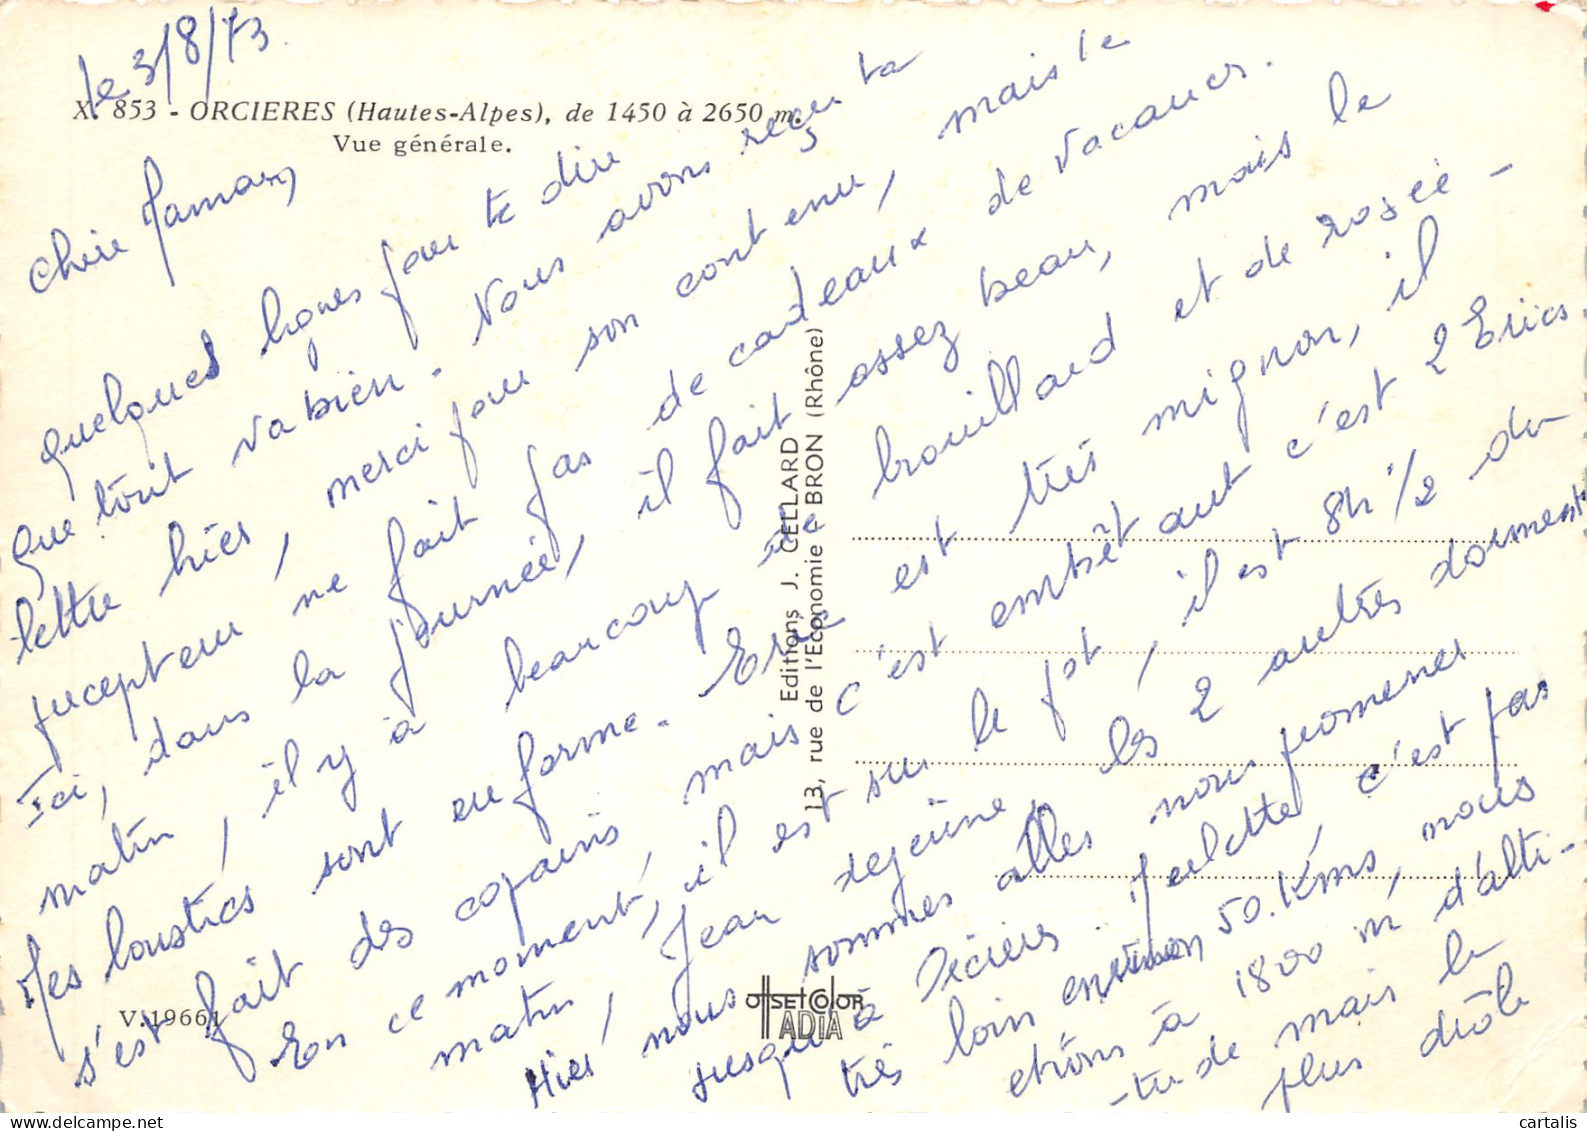 le 3/8/73
X. 853 - ORCIERES (Hautes-Alpes), de 1450 à 2650 m.
Vue générale.
Chère Maman,
quelques lignes pour te dire
que tout va bien. Nous avons reçu ta
lettre hier, merci pour son contenu, mais le
percepteur ne fait pas de cadeaux de vacances.
Ici, dans la journée, il fait assez beau, mais le
matin, il y a beaucoup de brouillard et de rosée -
Mes loustics sont en forme. Eric est très mignon, il
s'est fait des copains mais c'est embêtant c'est 2 Erics.
En ce moment, il est sur le pot, il est 8h 1/2 du
matin, Jean dejeune, les 2 autres dorment
Hier, nous sommes allés nous promener
jusqu'à Orcières. c'est pas
très loin environ 50 Kms, nous
étions à 1800 m d'alti-
-tude mais le
plus drôle
Editions J. CELLARD
13, rue de l'Economie - BRON (Rhône)
V. 19661
OFFSET COLOR
ADIA
cartalis